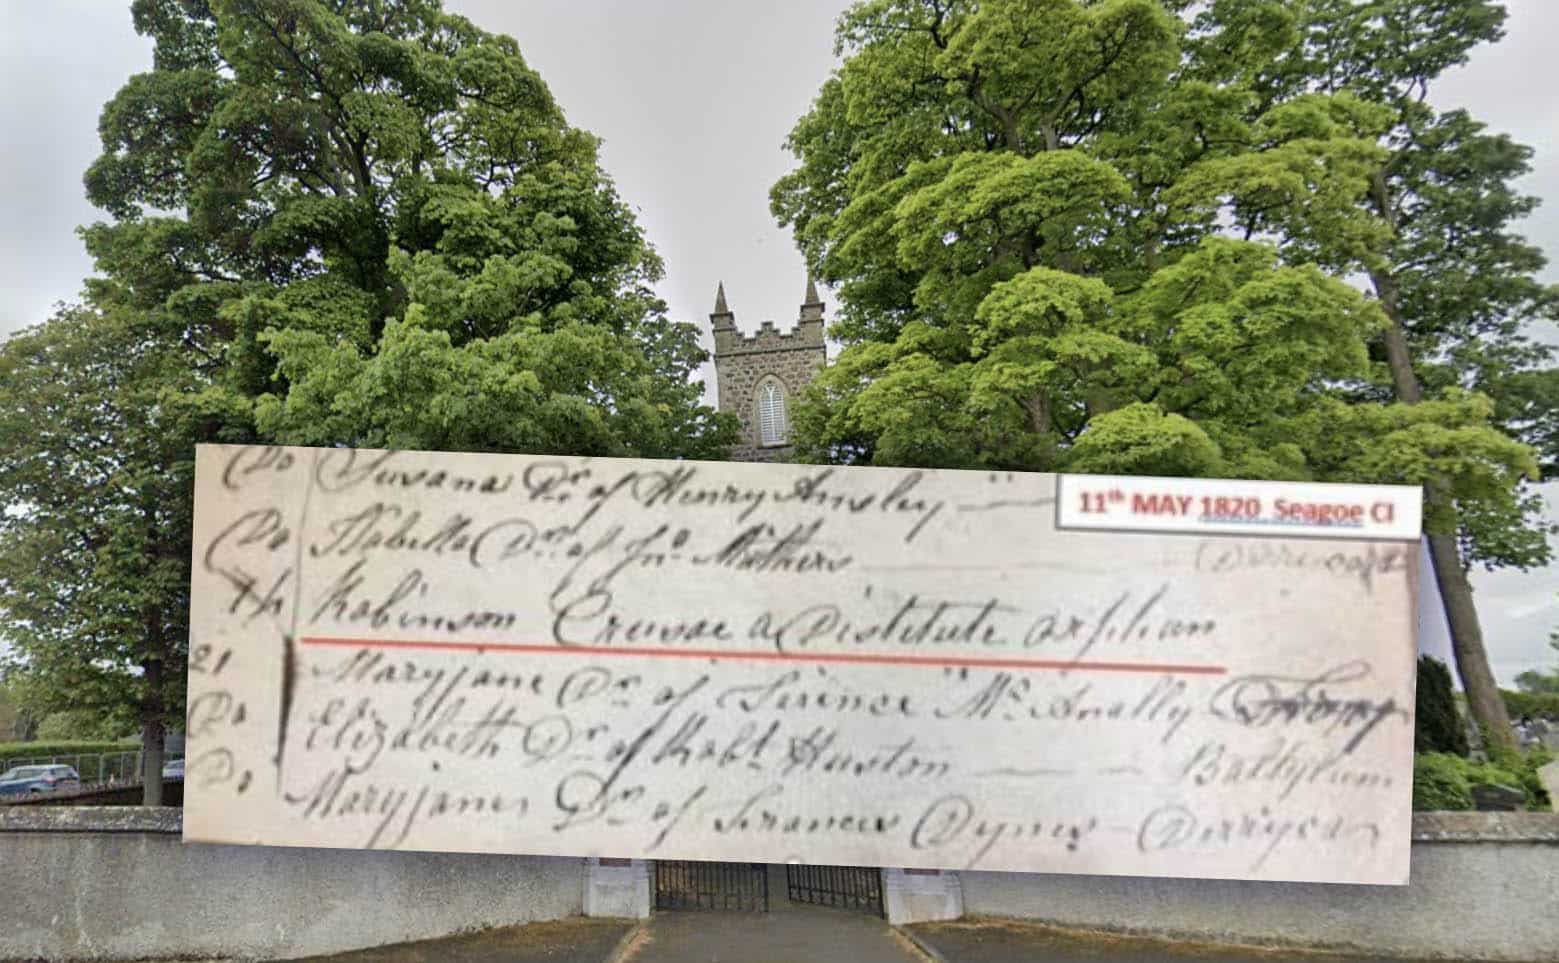 Do Susana Dr. of Henry Ansley
11th MAY 1820 Seagoe CI
Do Isabella Dr. of Jno. Mathers
Robinson Crusoe a Distitute orphan
21 Maryjane Dr. of Firence McAnally
Do Elizabeth Dr. of Robt. Huston Ballylum
Do Maryjane Dr. of Francis Dynes